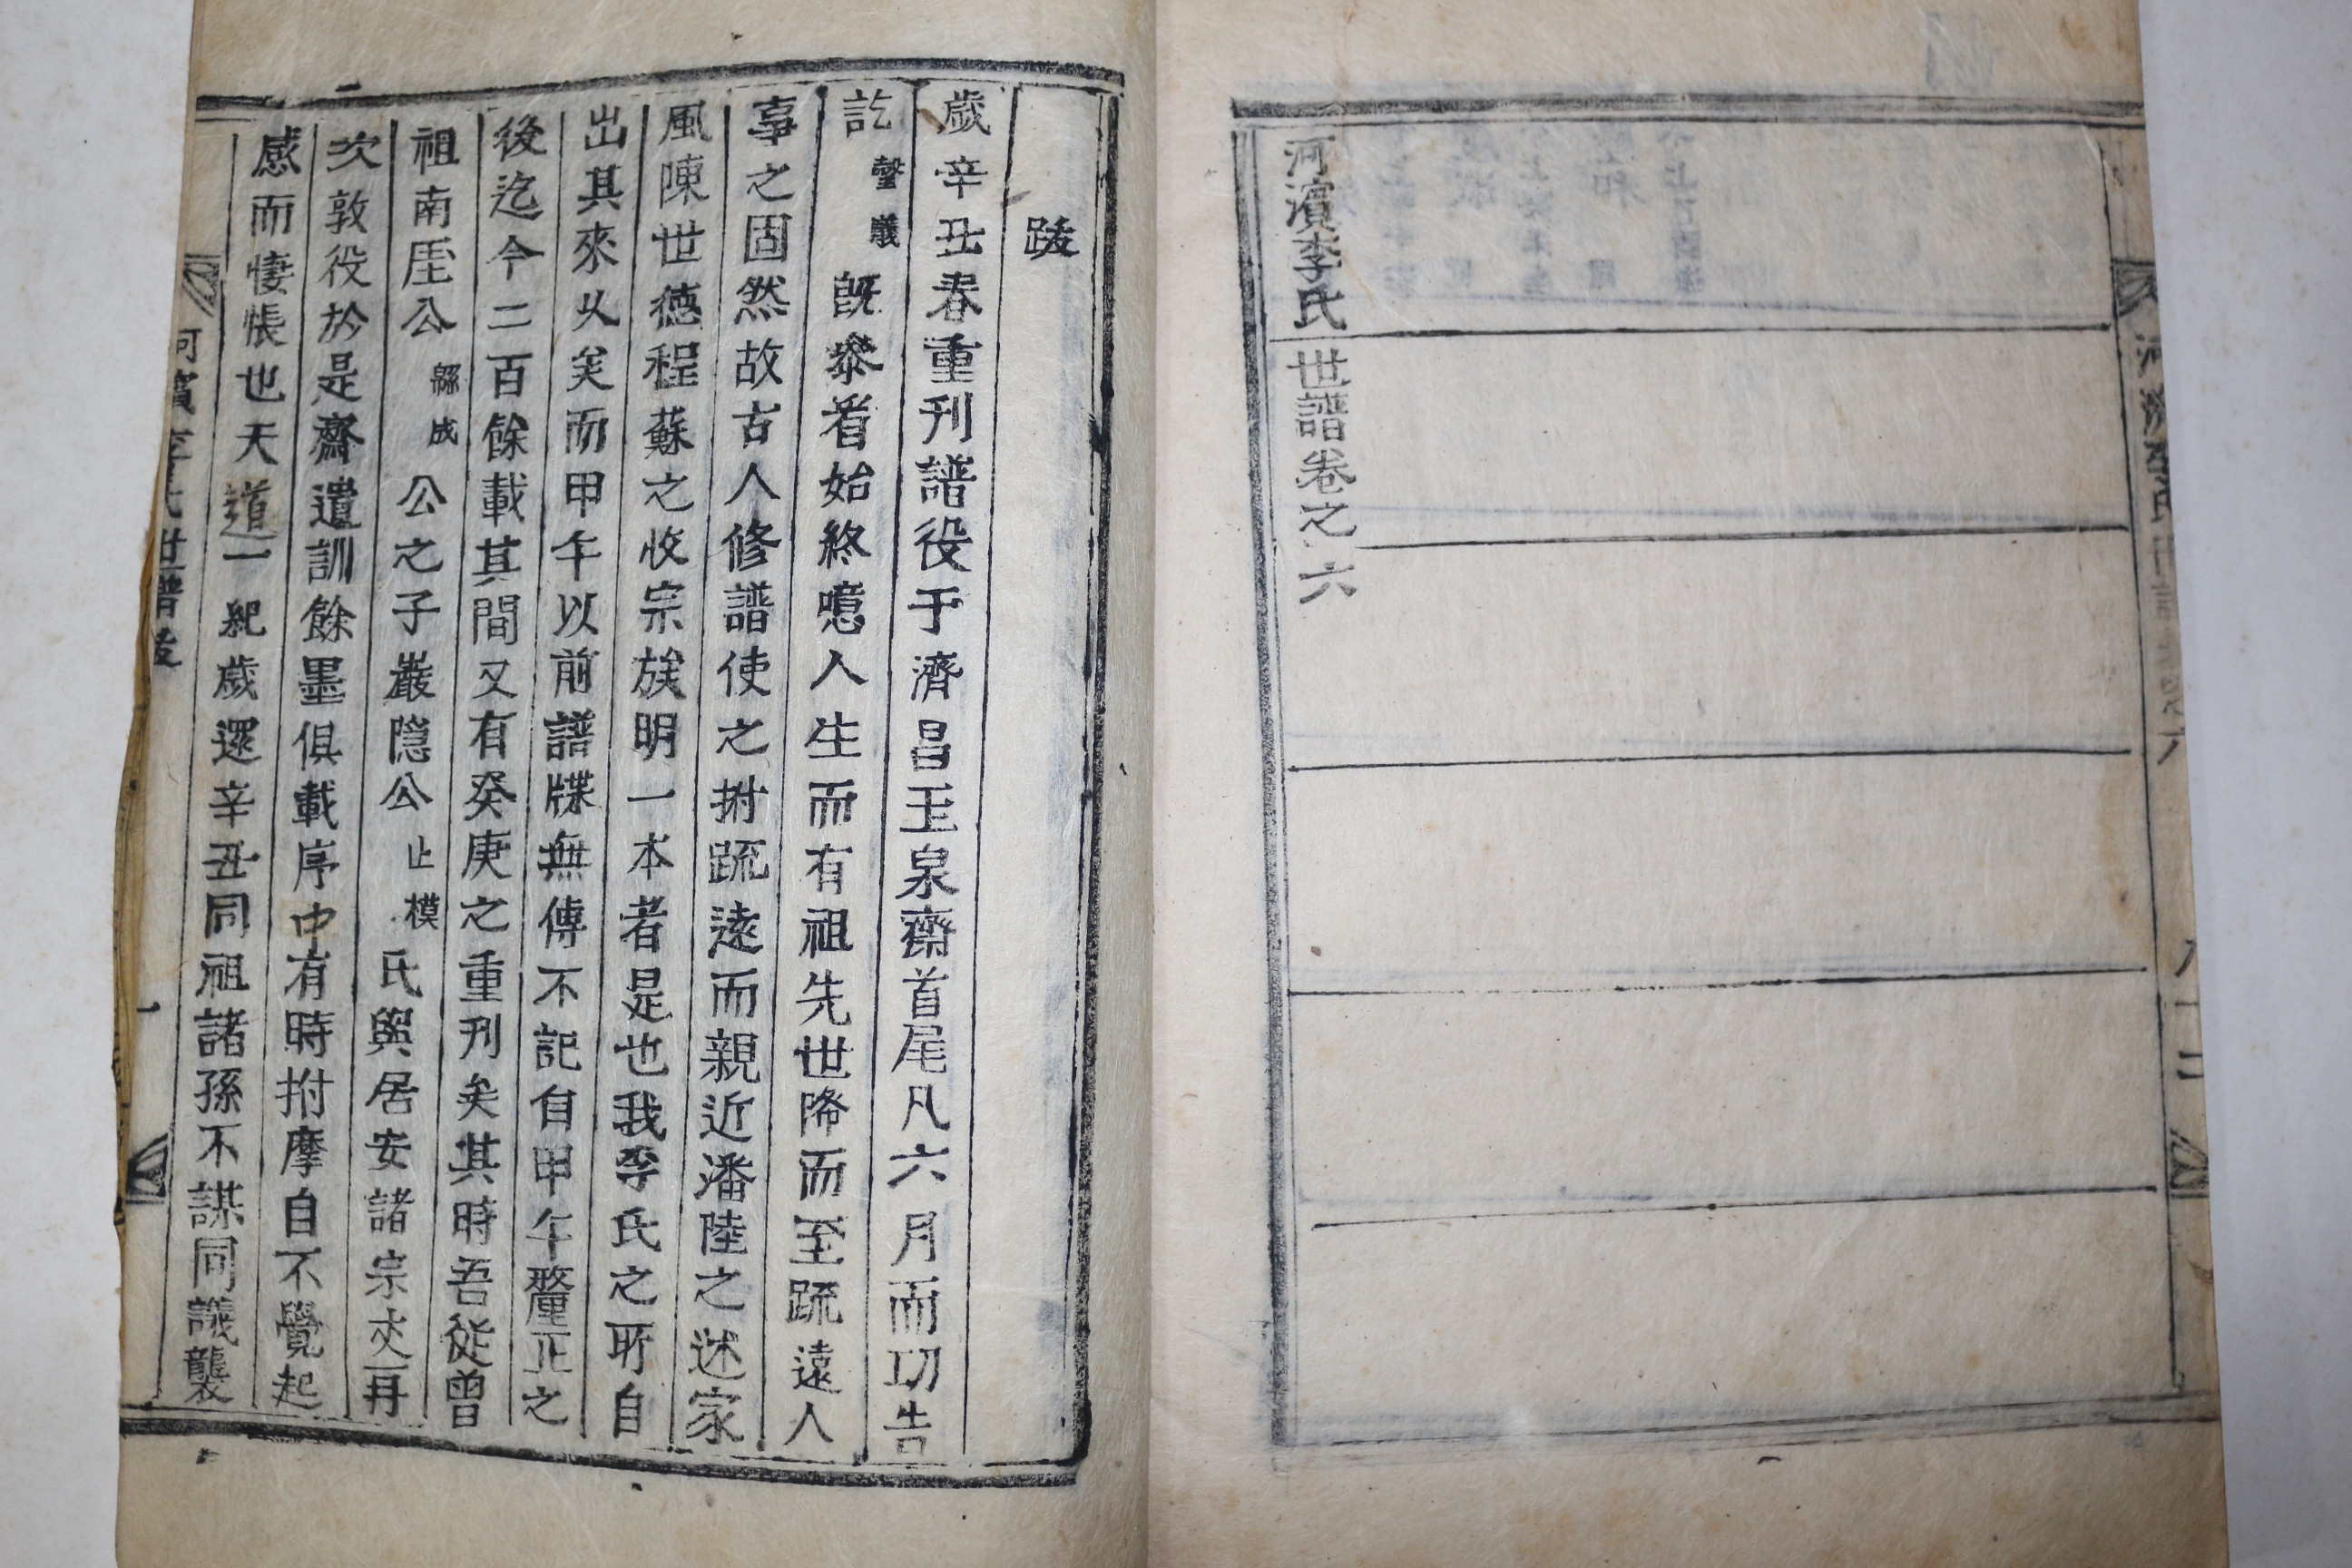 河濱李氏世譜卷之六
跋
歲辛丑春重刊譜役于濟昌玉泉齋首尾凡六月而功告
訖聲義旣叅看始終噫人生而有祖先世降而至疏遠人
事之固然故古人修譜使之拊疏遠而親近潘陸之述家
風陳世德程蘇之收宗族明一本者是也我李氏之所自
出其來久矣而甲午以前譜牒無傳不記自甲午釐正之
後迄今二百餘載其間又有癸庚之重刊矣其時吾從曾
祖南厓公繇成公之子巖隱公止模氏與居安諸宗夾再
次敦役於是齋遺訓餘墨俱載序中有時拊摩自不覺起
感而悽悵也天道一紀歲還辛丑同祖諸孫不謀同議襲
河濱李氏世譜跋
一